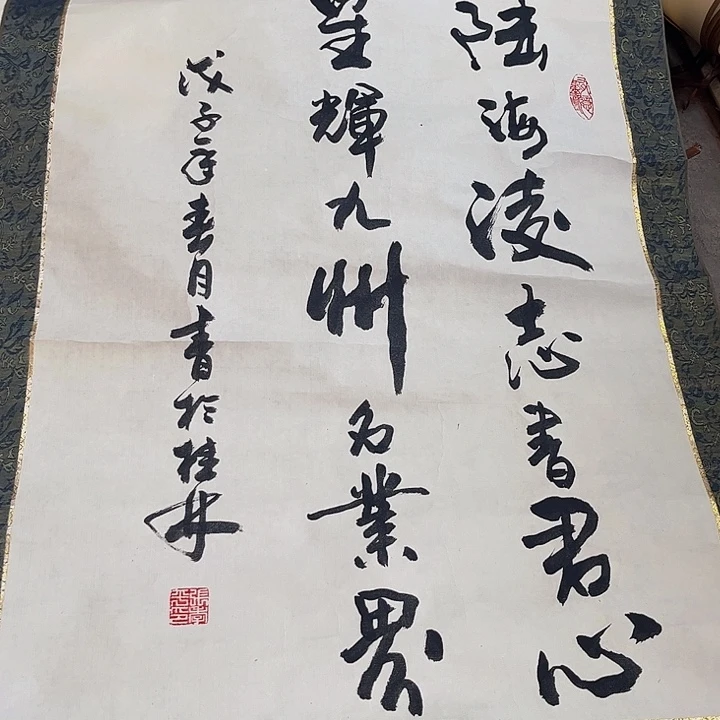 陸海凌志書君心
星輝九州名業界
戊子年春月書於桂林